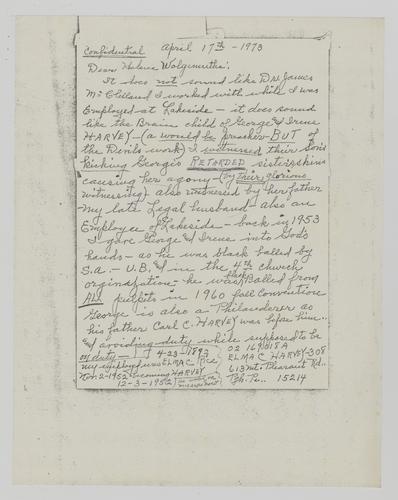 Confidential April 17th - 1973
Dear Helene Wolgemuth:
It does not sound like Dr. James
McClelland I worked with while I was
Employed at Lakeside - it does sound
like the Brain child of George & Irene
HARVEY - (a would be preacher - BUT of
the Devils work) I witnessed their Sons
kicking George's RETARDED sisters skins
causing her agony - (by their glorious
witnessing) also witnessed by her father
My late Legal husband - also an
Employee of Lakeside - back in 1953
I gave George & Irene into God's
hands - as he was black balled by
S.A. - U.B. & in the 4th church
orginization - he was black Balled from
ALL pulpits in 1960 fall Convention
George is also a Philanderer as
his father Carl C. HARVEY was before him..
& avoiding duty while supposed to be
on duty -
4-23-1893
my employ was ELMA C Rice
Nov. 2-1952 - becoming HARVEY
12-3-1952
ELMA C HARVEY - 308
613 Mt. Pleasant Rd.,
Ph. Pa.. 15214